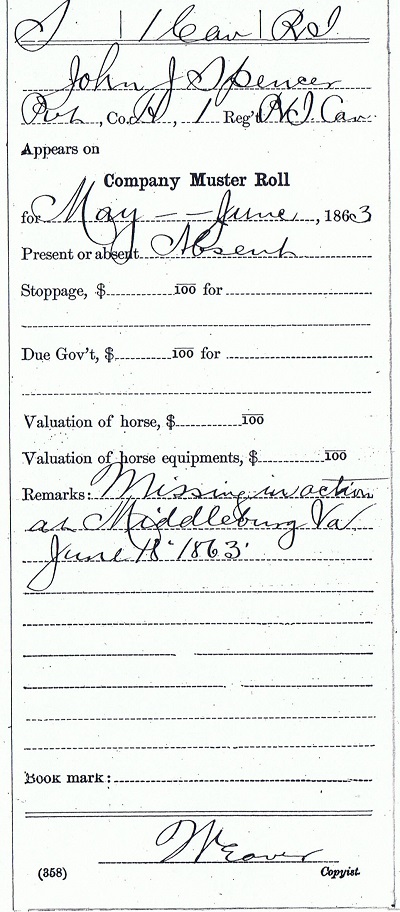 S | 1 Cav | R I
John J Spencer
Pvt, Co. H, 1 Reg't R I Cav.
Appears on
Company Muster Roll
for May - - June, 1863
Present or absent Absent
Stoppage, $ 100 for
Due Gov't, $ 100 for
Valuation of horse, $ 100
Valuation of horse equipments, $ 100
Remarks: Missing in action
at Middleburg Va
June 18 1863.
Book mark:
Weaver
(358) Copyist.